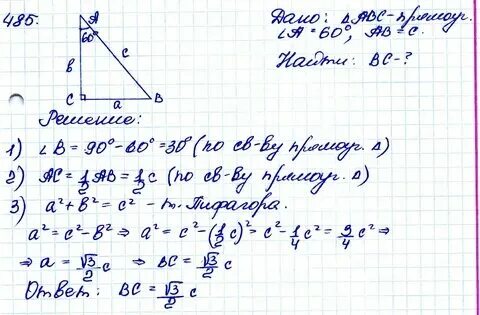 485.
Дано: △ABC - прямоуг.
∠A = 60°, AB = c.
Найти: BC - ?
A
60°
b
c
C
a
B
Решение:
1) ∠B = 90° - 60° = 30° (по св-ву прямоуг. △)
2) AC = 1/2 AB = 1/2 c (по св-ву прямоуг. △)
3) a² + b² = c² - т. Пифагора.
a² = c² - b² ⇒ a² = c² - (1/2 c)² = c² - 1/4 c² = 3/4 c² ⇒
⇒ a = √3/2 c ⇒ BC = √3/2 c
Ответ: BC = √3/2 c